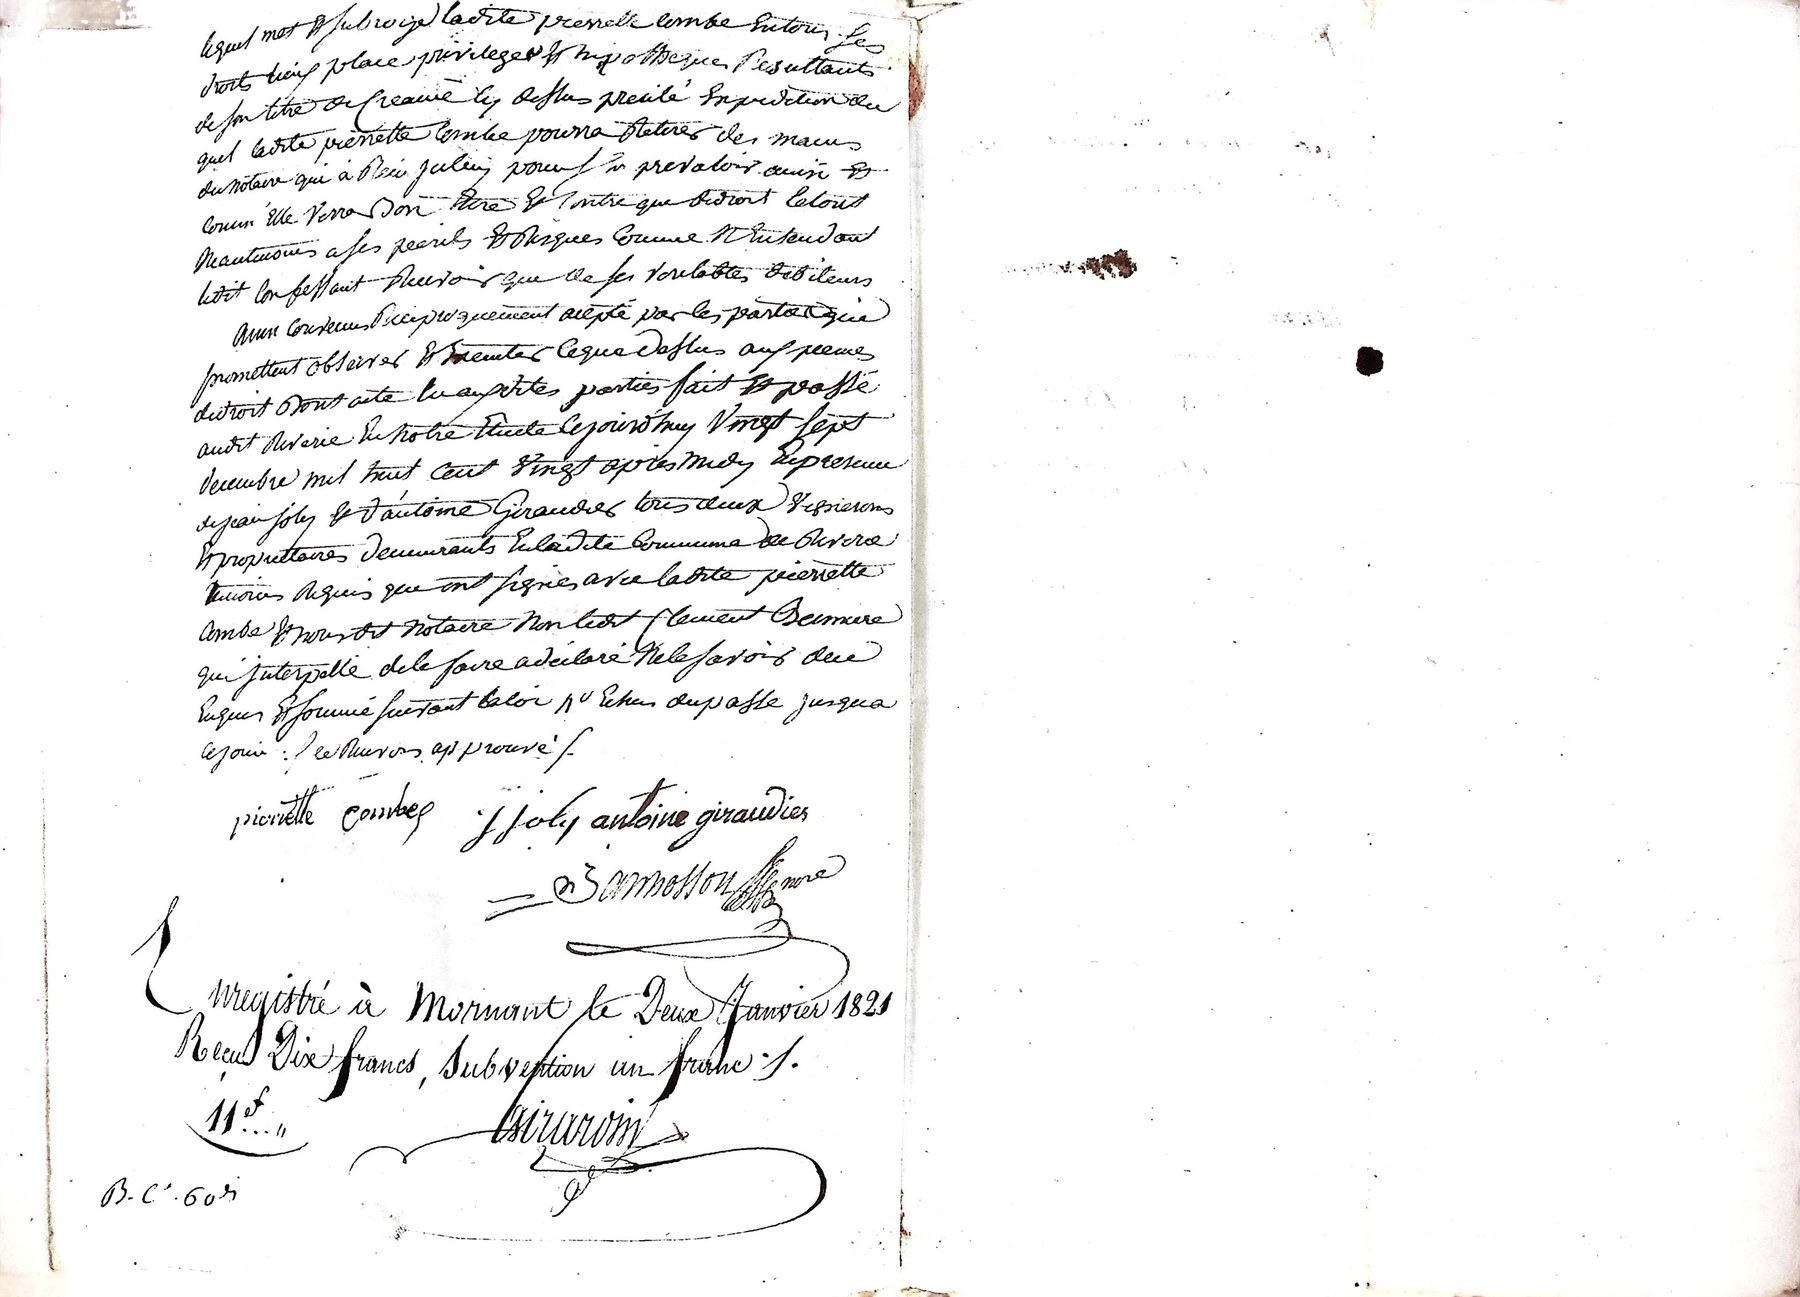 lequel met et subroge ladite pierrette Combe En tous ses
droits lieux place privileges et hipotheques Resultants
de son titre de Creance cy dessus presité Expedition du
quel ladite pierrette Combe pourra Retirer des mains
du notaire qui à Reçu pour S'en prevaloir ainsi et
comm' Elle Verra Bon Etre Et Contre que de droit le tout
Neantmoins a ses perils Et Risques comme N'Entendant
ledit Confessant que de ses veritables debiteurs
Ainsi Convenus Reciproquement acepté par les parties qui
promettent observer Et Executer Ceque dessus aux peines
de droit Dont acte lu auxdites parties fait Et passé
audit Riverie En notre Etude Cejourd'huy Vingt sept
decembre mil huit cent Vingt après midy En presence
de jean joly Et d'antoine Giraudier tous deux Vignerons
Et proprietaires demeurants En ladite Commune de Riverie
temoins Requis que ont signés avec ladite pierrette
Combe Et nousdit Notaire Non ledit Clement
qui interpellé de le faire a déclaré Ne le savoir de ce
Enquis Et sommé suivant la loi Echus du passé jusqua
ce jour approuvé
pierrette Combe j joly antoine giraudier
Enregistré à Mornant le Deux Janvier 1821
Reçu Dix francs, Subvention un franc
11 f